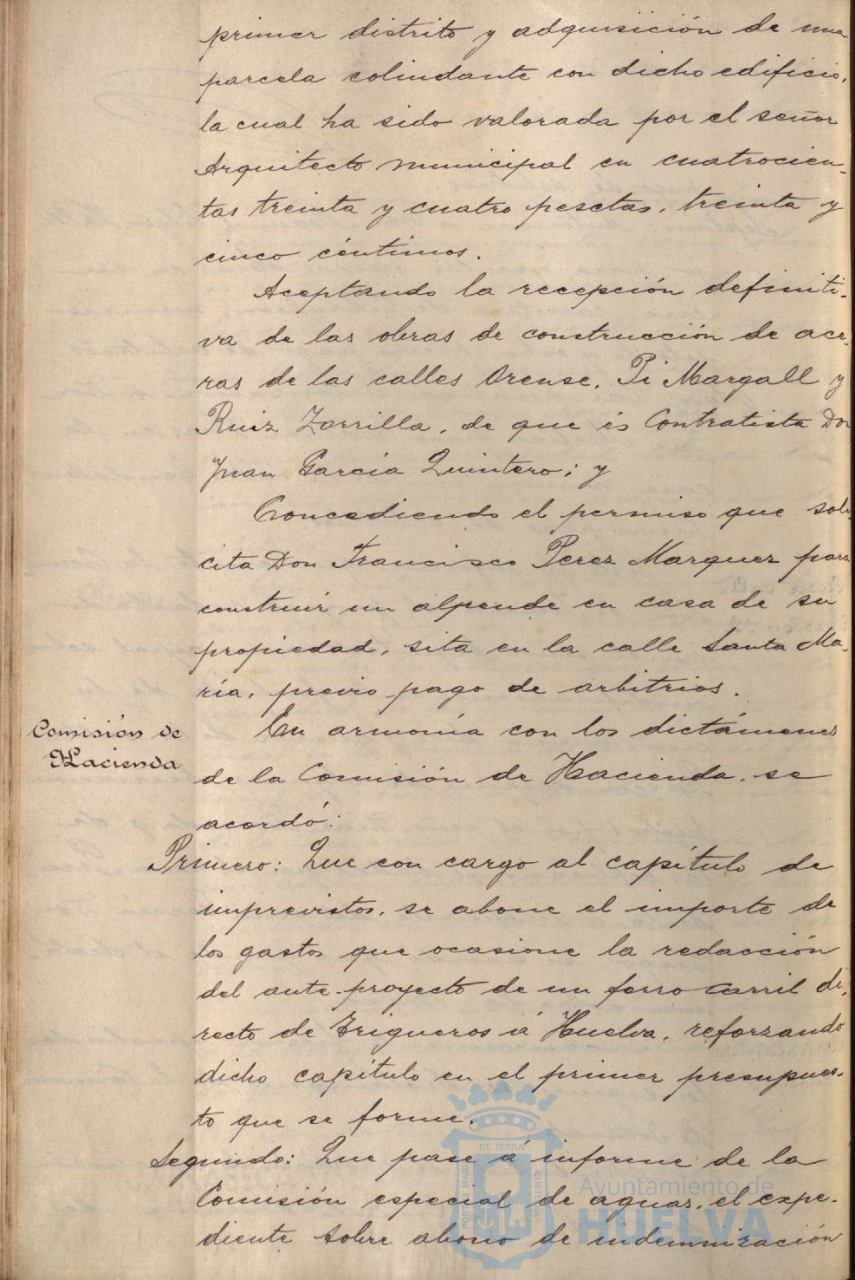 primer distrito y adquisición de una
parcela colindante con dicho edificio,
la cual ha sido valorada por el señor
Arquitecto municipal en cuatrocien-
tas treinta y cuatro pesetas, treinta y
cinco céntimos.
Aceptando la recepción definiti-
va de las obras de construcción de ace-
ras de las calles Orense, Pi Margall y
Ruiz Zorrilla, de que és Contratista Don
Juan García Quintero; y
Concediendo el permiso que soli-
cita Don Francisco Perez Marquez para
construir un alpende en casa de su
propiedad, sita en la calle Santa Ma-
ría, previo pago de arbitrios.
Comisión de
Hacienda
En armonía con los dictámenes
de la Comisión de Hacienda, se
acordó:
Primero: Que con cargo al capítulo de
imprevistos, se abone el importe de
los gastos que ocasione la redacción
del ante-proyecto de un ferro carril di-
recto de Trigueros á Huelva, reforzando
dicho capítulo en el primer presupues-
to que se forme.
Segundo: Que pase á informe de la
Comisión especial de aguas, el expe-
diente sobre abono de indemnización
Ayuntamiento de
HUELVA